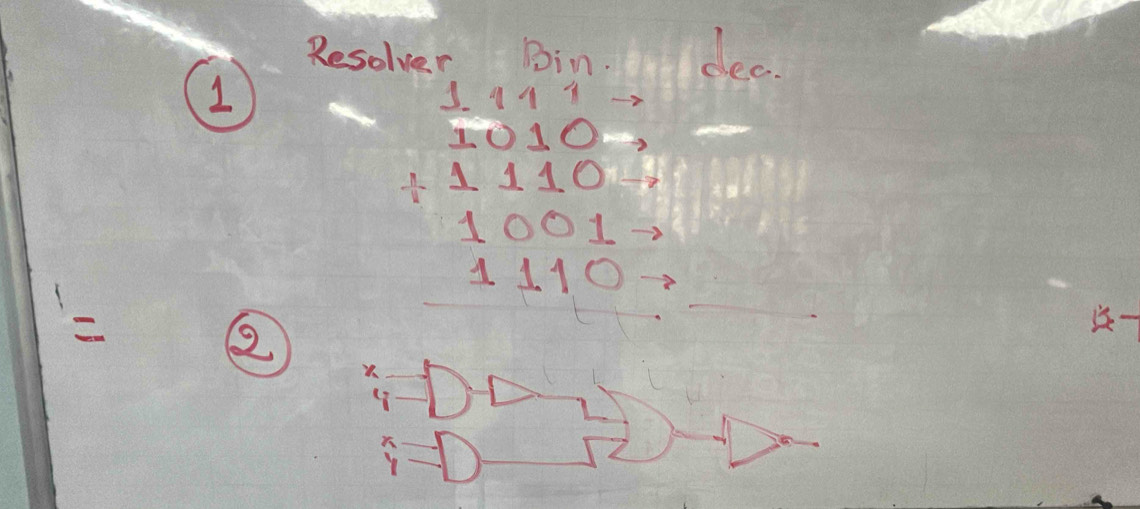 Resolver Bin. dec.
1
1111 →
1010 →
+ 1110 →
1001 →
1110 →
=
2
x
y
x
y